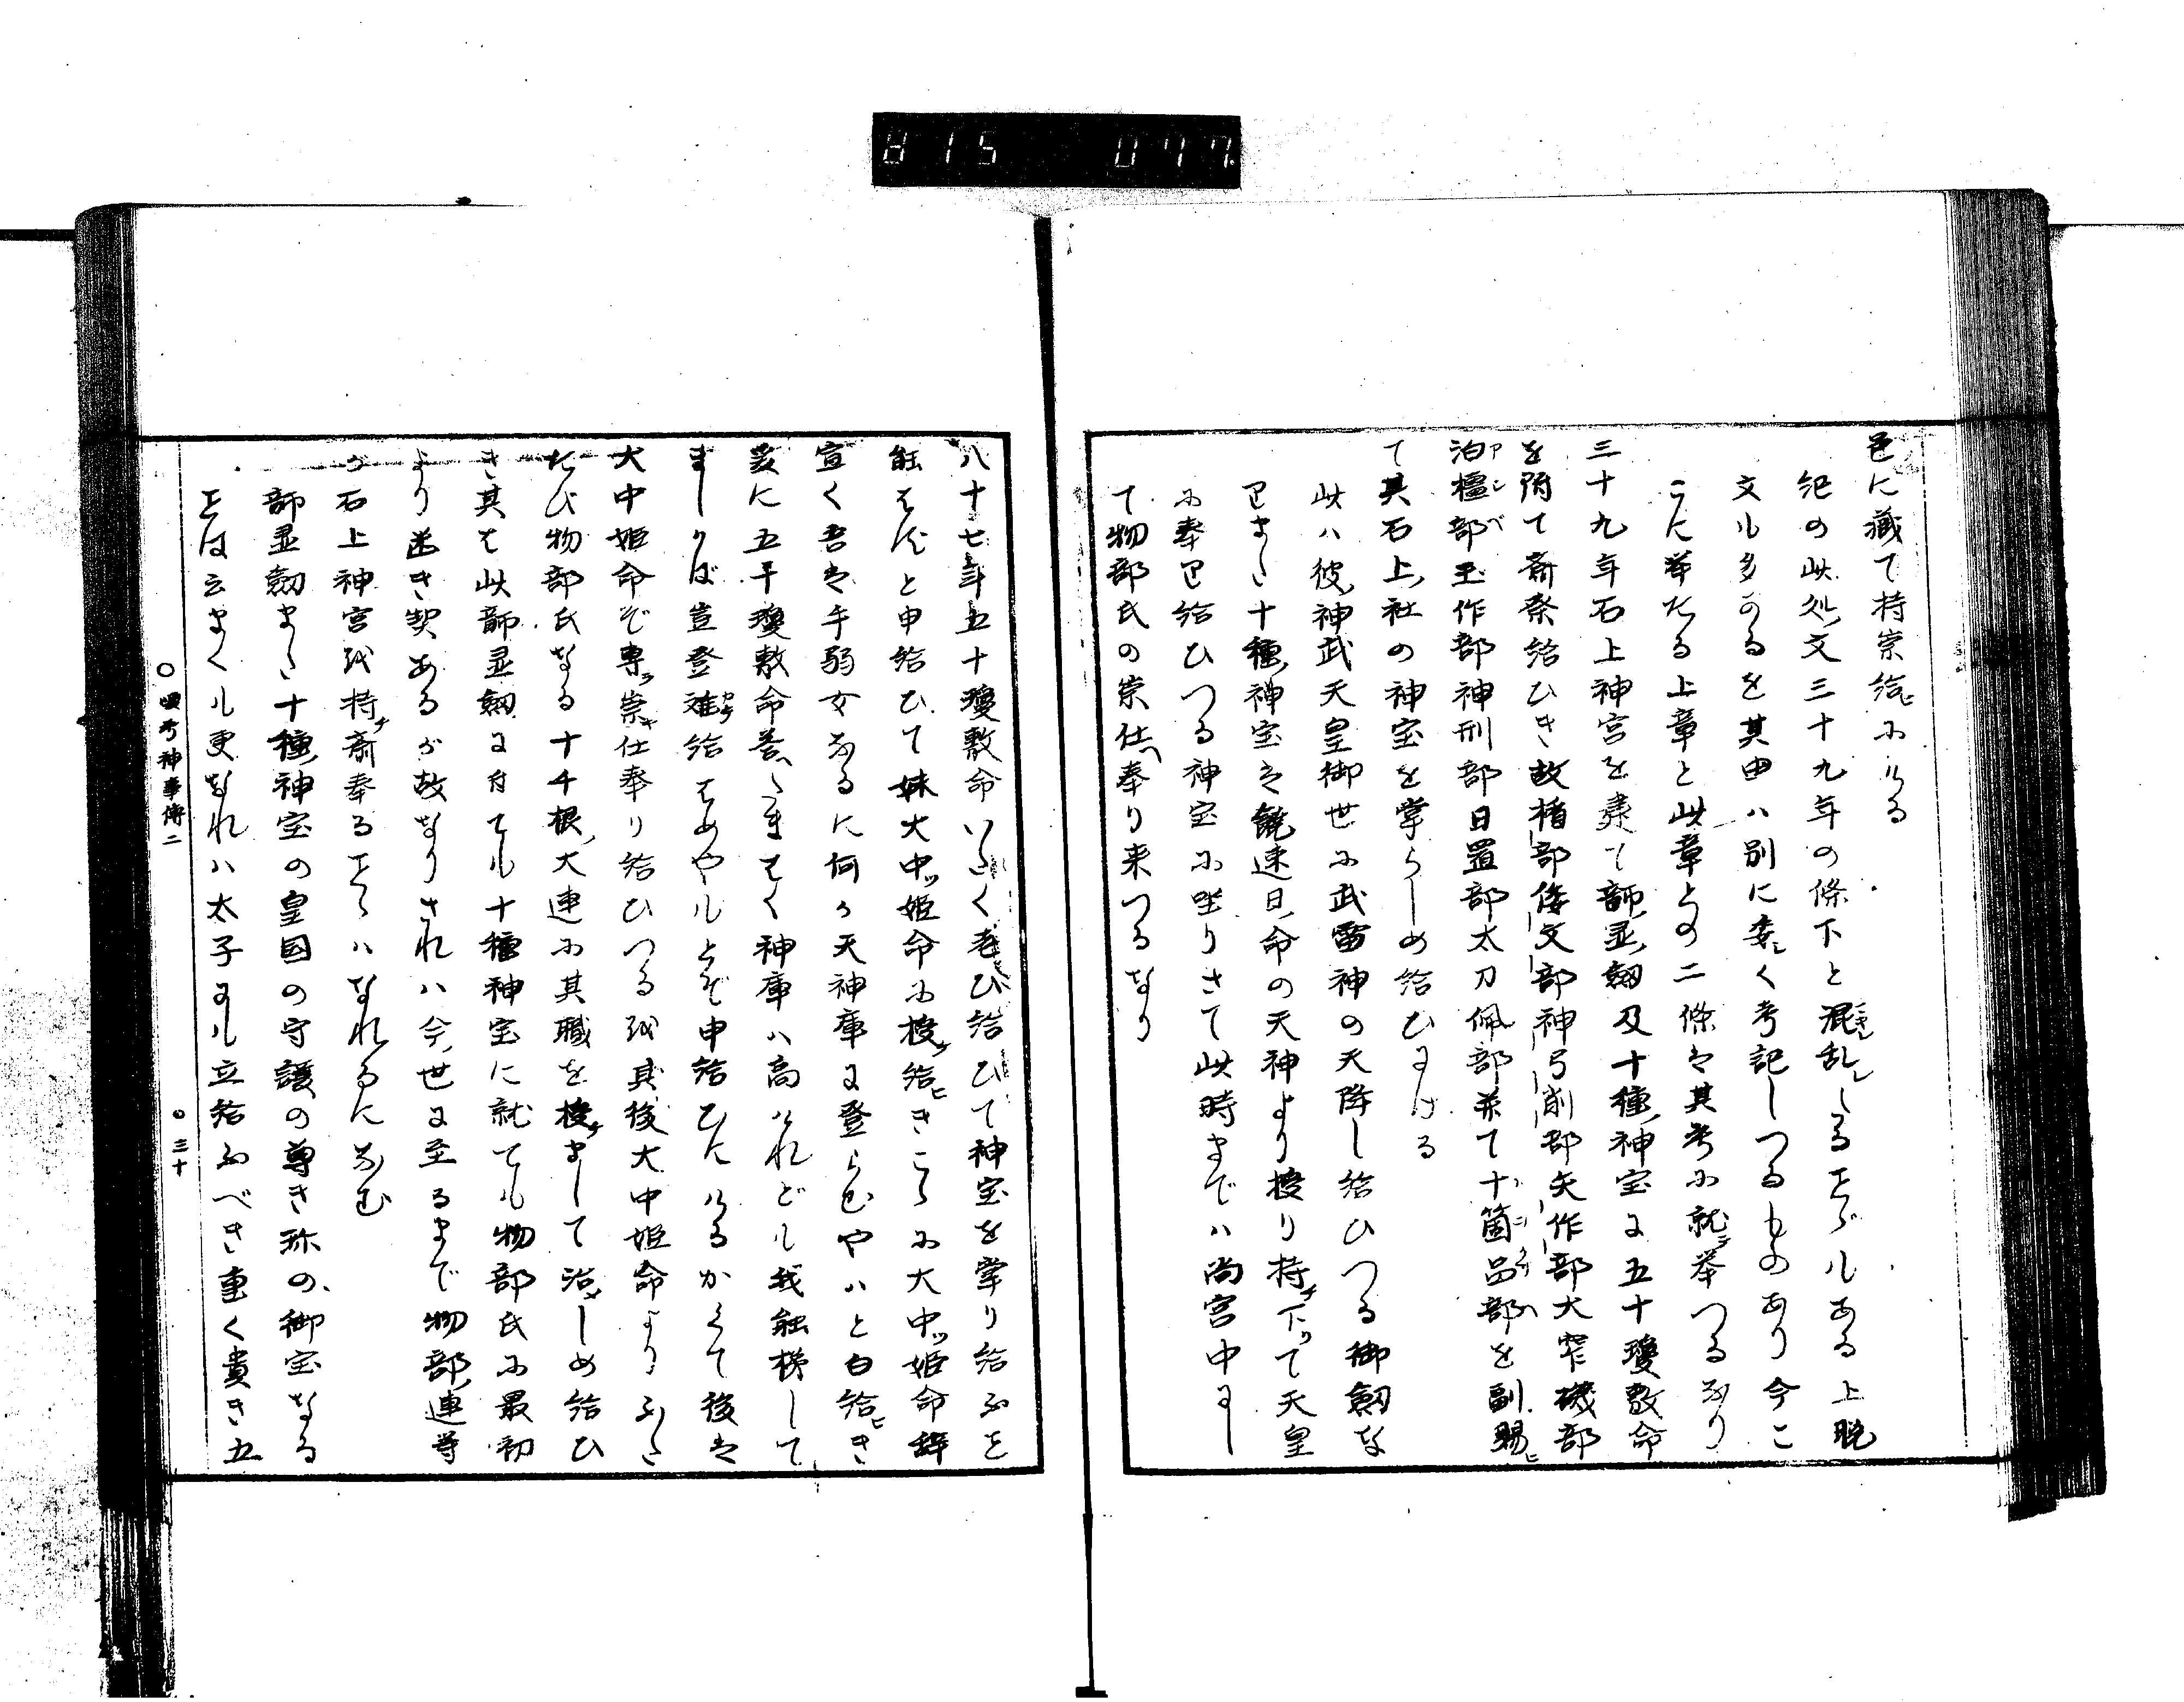 815 077
邑に蔵て持崇給ヒふける
紀の此処文三十九年の條下と混乱しるところもある上脱
文ル多かるを其由ハ別に委しく考記しつるものあり今こ
こに挙たる上章と此章との二條は其考ふ就て挙つるなり
三十九年石上神宮を建て韴霊剱及十種神宝に五十瓊敷命
を附て斎祭給ひき故楯部倭文部神弓削部矢作部大穴磯部
泊橿部玉作部神刑部日置部太刀佩部并て十箇品部を副賜ヒ
て其石上社の神宝を掌らしめ給ひにける
此ハ彼神武天皇御世ふ武雷神の天降し給ひつる御剱な
りまた十種神宝は饒速日命の天神より授り持チ下ッて天皇
ふ奉り給ひつる神宝ふ坐りさて此時までハ尚宮中にし
て物部氏の崇仕ヘ奉り来つるなり
八十七年五十瓊敷命いたく老ひ給ひて神宝を掌り給ふと
能はずと申給ひて妹大中ッ姫命ふ授ケ給ヒきこゝふ大中ッ姫命辞
宣く吾は手弱女なるに何か天神庫に登らむやハと白給ヒき
爰に五十瓊敷命答ヘたまはく神庫ハ高けれどル我能梯して
ましかば豈登難給はめやルとぞ申給ひにけるかくて後は
大中姫命ぞ専ラ崇キ仕奉り給ひつる我其後大中姫命よりふた
たび物部氏なる十千根大連ふ其職を授ケまして治メしめ給ひ
き其は此韴霊剱に付てル十種神宝に就てル物部氏ふ最初
より逃き契あるが故なりされハ今世に至るまで物部連等
が石上神宮我持チ斎奉ることゝハなれるになむ
韴霊剱また十種神宝の皇国の守護の尊き称の御宝なる
とは云まくル更なれハ太子にル立給ふべき重く貴き五
神事傳二
三十